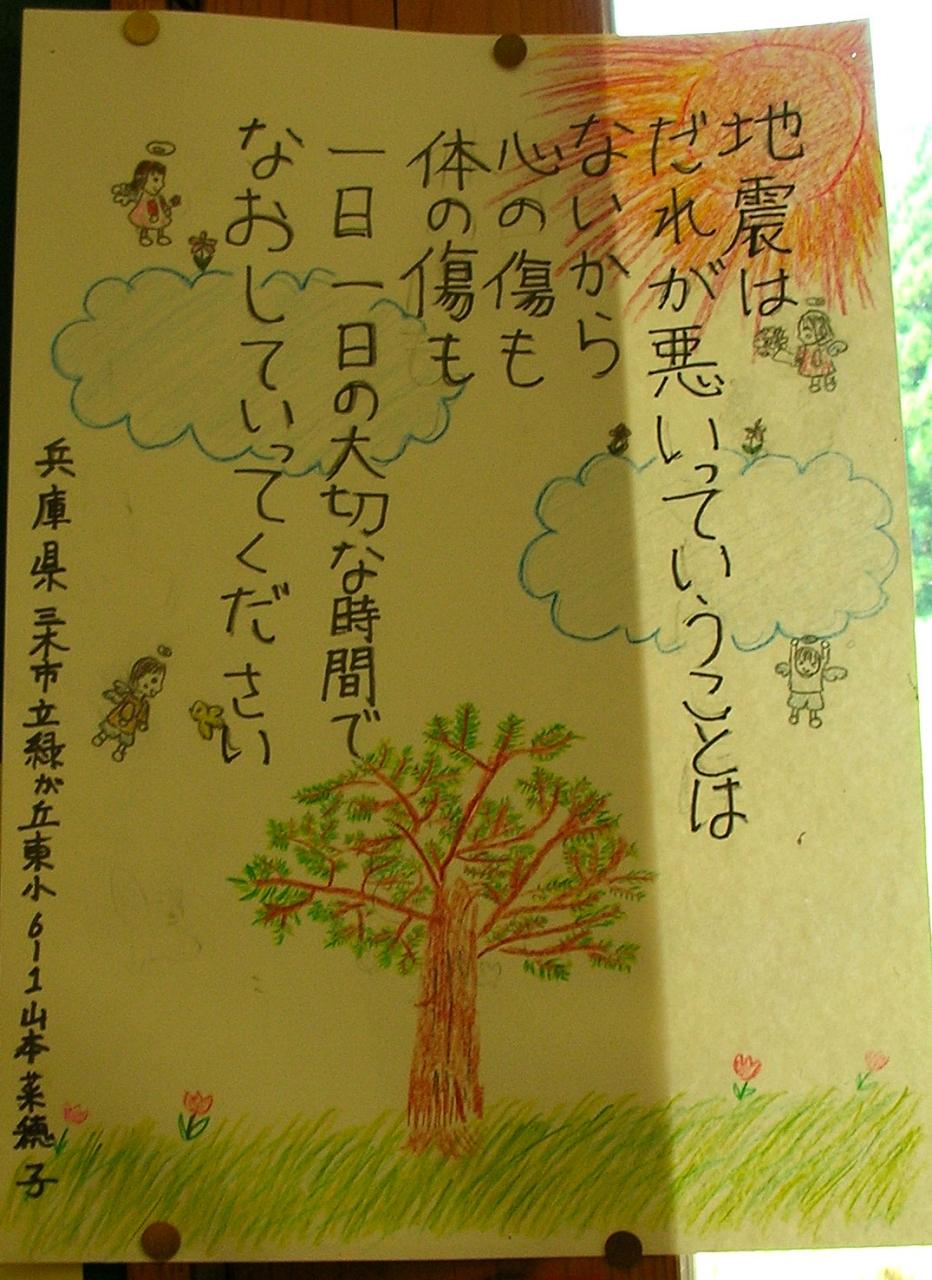 地震は
だれが悪いっていうことは
ないから
心の傷も
体の傷も
一日一日の大切な時間で
なおしていってください
兵庫県三木市立緑が丘東小6-1山本菜穂子